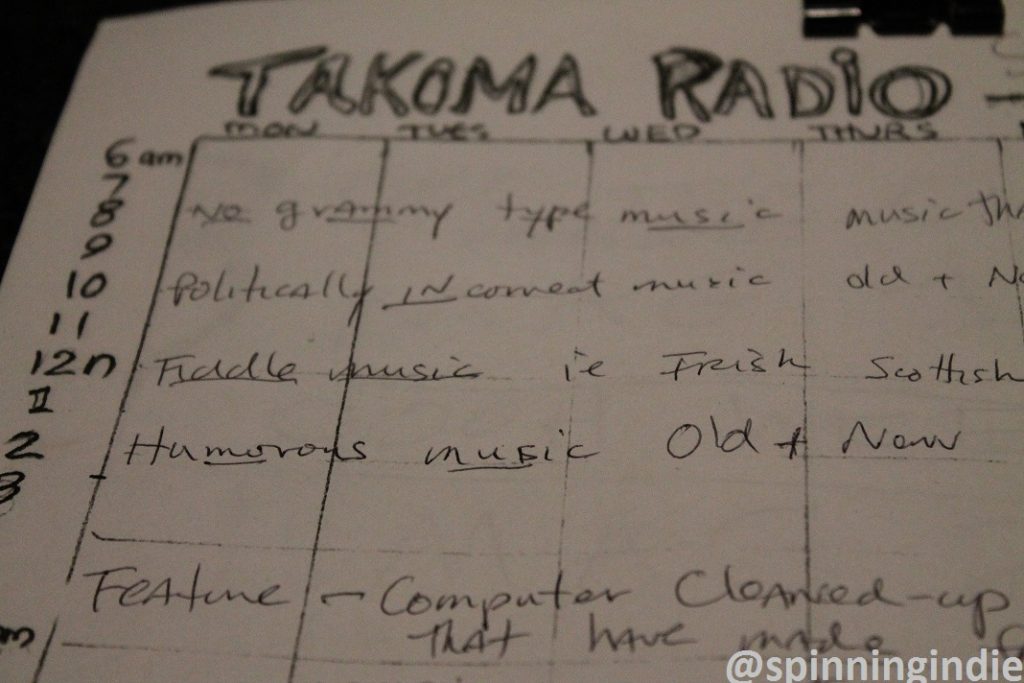 TAKOMA RADIO -
MON TUES WED THURS
6 am
7
8 No grammy type music music th
9
10 Politically INcorrect music old + No
11
12n Fiddle music ie Irish Scottish
1
2 Humorous music Old + New
3
Feature - Computer Cleaned-up
that have made
m
@spinningindie